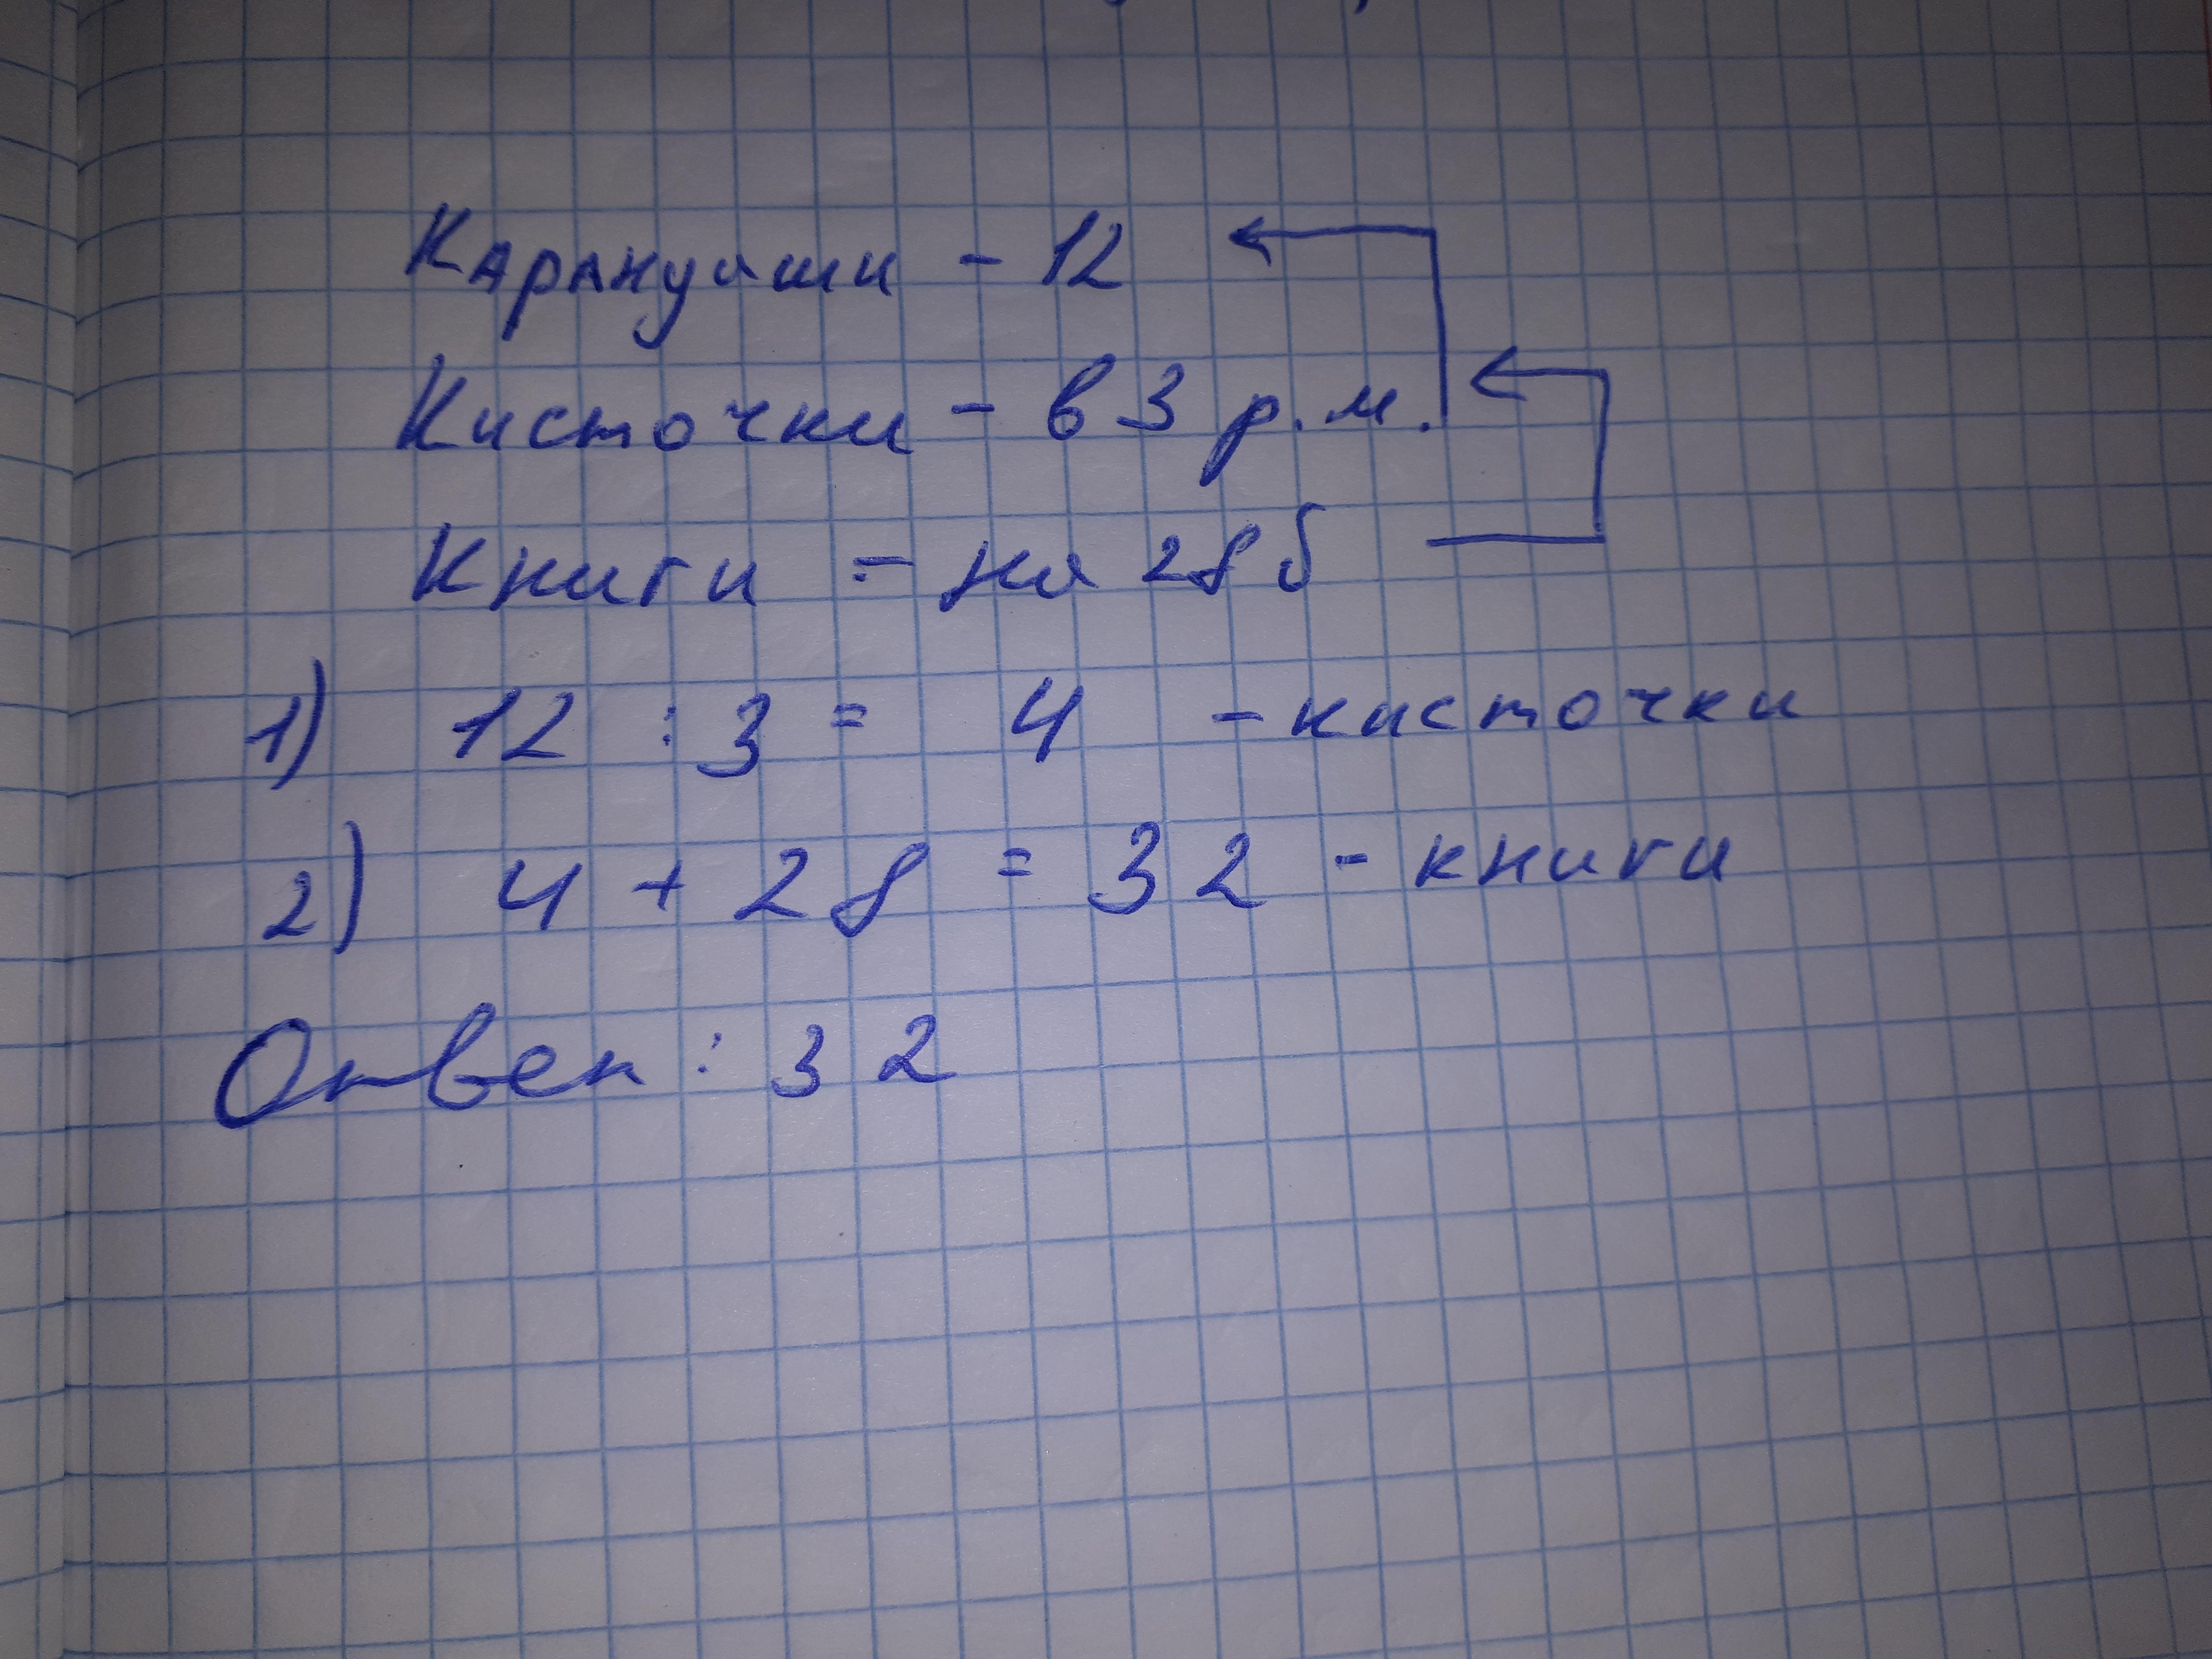 Карандаши - 12
Кисточки - в 3 р.м.
Книги - на 28 б
1) 12 : 3 = 4 - кисточки
2) 4 + 28 = 32 - книги
Ответ: 32